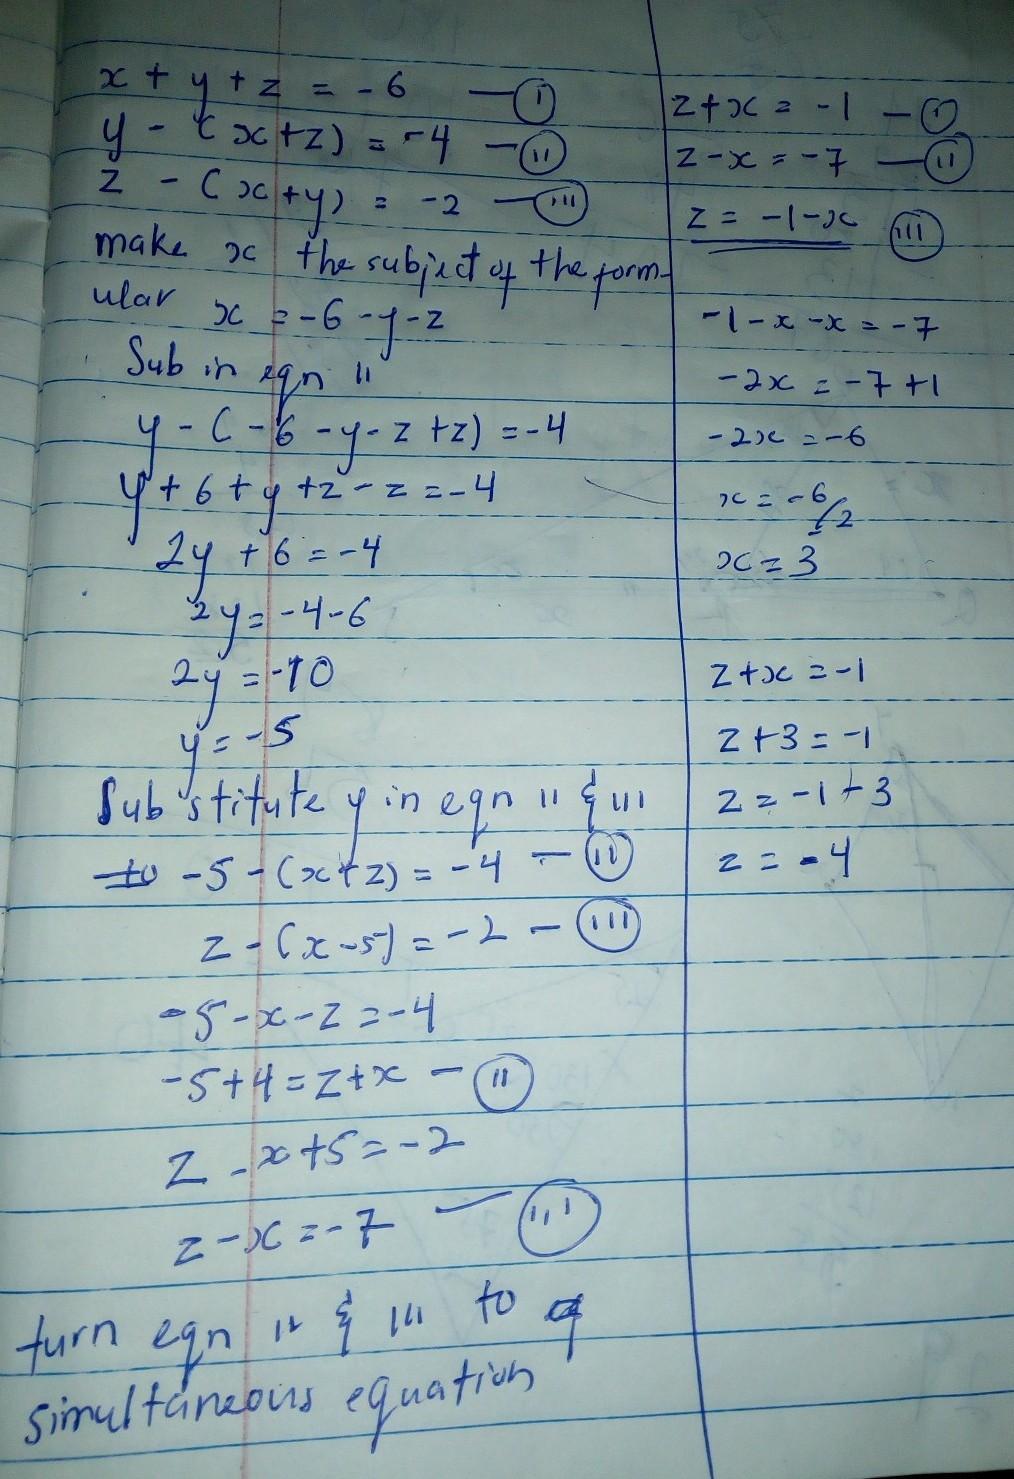 x + y + z = -6 — (i)
y - (x+z) = -4 — (ii)
z - (x+y) = -2 — (iii)
make x the subject of the form-
ular x = -6 - y - z
Sub in eqn ii
y - (-6 - y - z + z) = -4
y + 6 + y + z - z = -4
2y + 6 = -4
2y = -4-6
2y = -10
y = -5
Substitute y in eqn ii & iii
to -5 - (x+z) = -4 — (ii)
z - (x-5) = -2 — (iii)
-5 - x - z = -4
-5+4 = z+x — (ii)
z - x + 5 = -2
z - x = -7 — (iii)
turn eqn ii & iii to
simultaneous equation
z + x = -1 — (i)
z - x = -7 — (ii)
z = -1-x (iii)
-1 - x - x = -7
-2x = -7+1
-2x = -6
x = -6/-2
x = 3
z + x = -1
z + 3 = -1
z = -1 + 3
z = -4